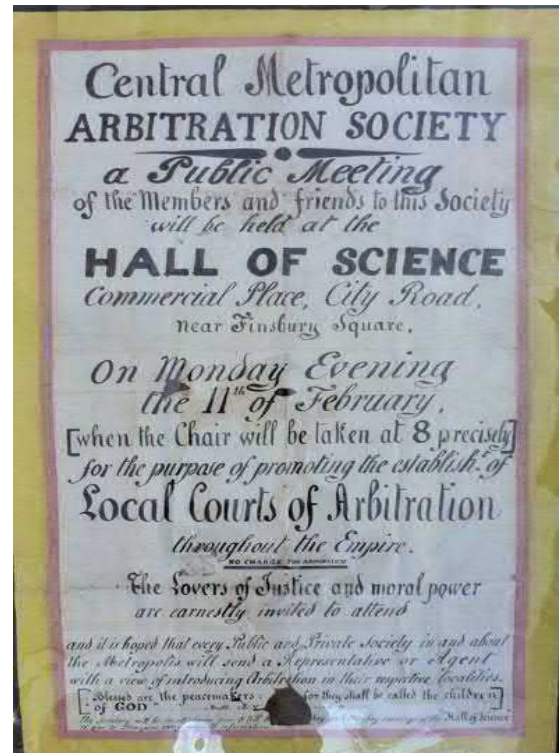 Central Metropolitan
ARBITRATION SOCIETY
a Public Meeting
of the Members and friends to this Society
will be held at the
HALL OF SCIENCE
Commercial Place, City Road,
near Finsbury Square,
On Monday Evening
the 11th of February,
[when the Chair will be taken at 8 precisely]
for the purpose of promoting the establisht. of
Local Courts of Arbitration
throughout the Empire.
NO CHARGE FOR ADMISSION
The Lovers of Justice and moral power
are earnestly invited to attend
and it is hoped that every Public and Private Society in and about
the Metropolis will send a Representative or Agent
with a view of introducing Arbitration in their respective localities.
[Blessed are the peacemakers for they shall be called the children
of GOD]
the Hall of Science